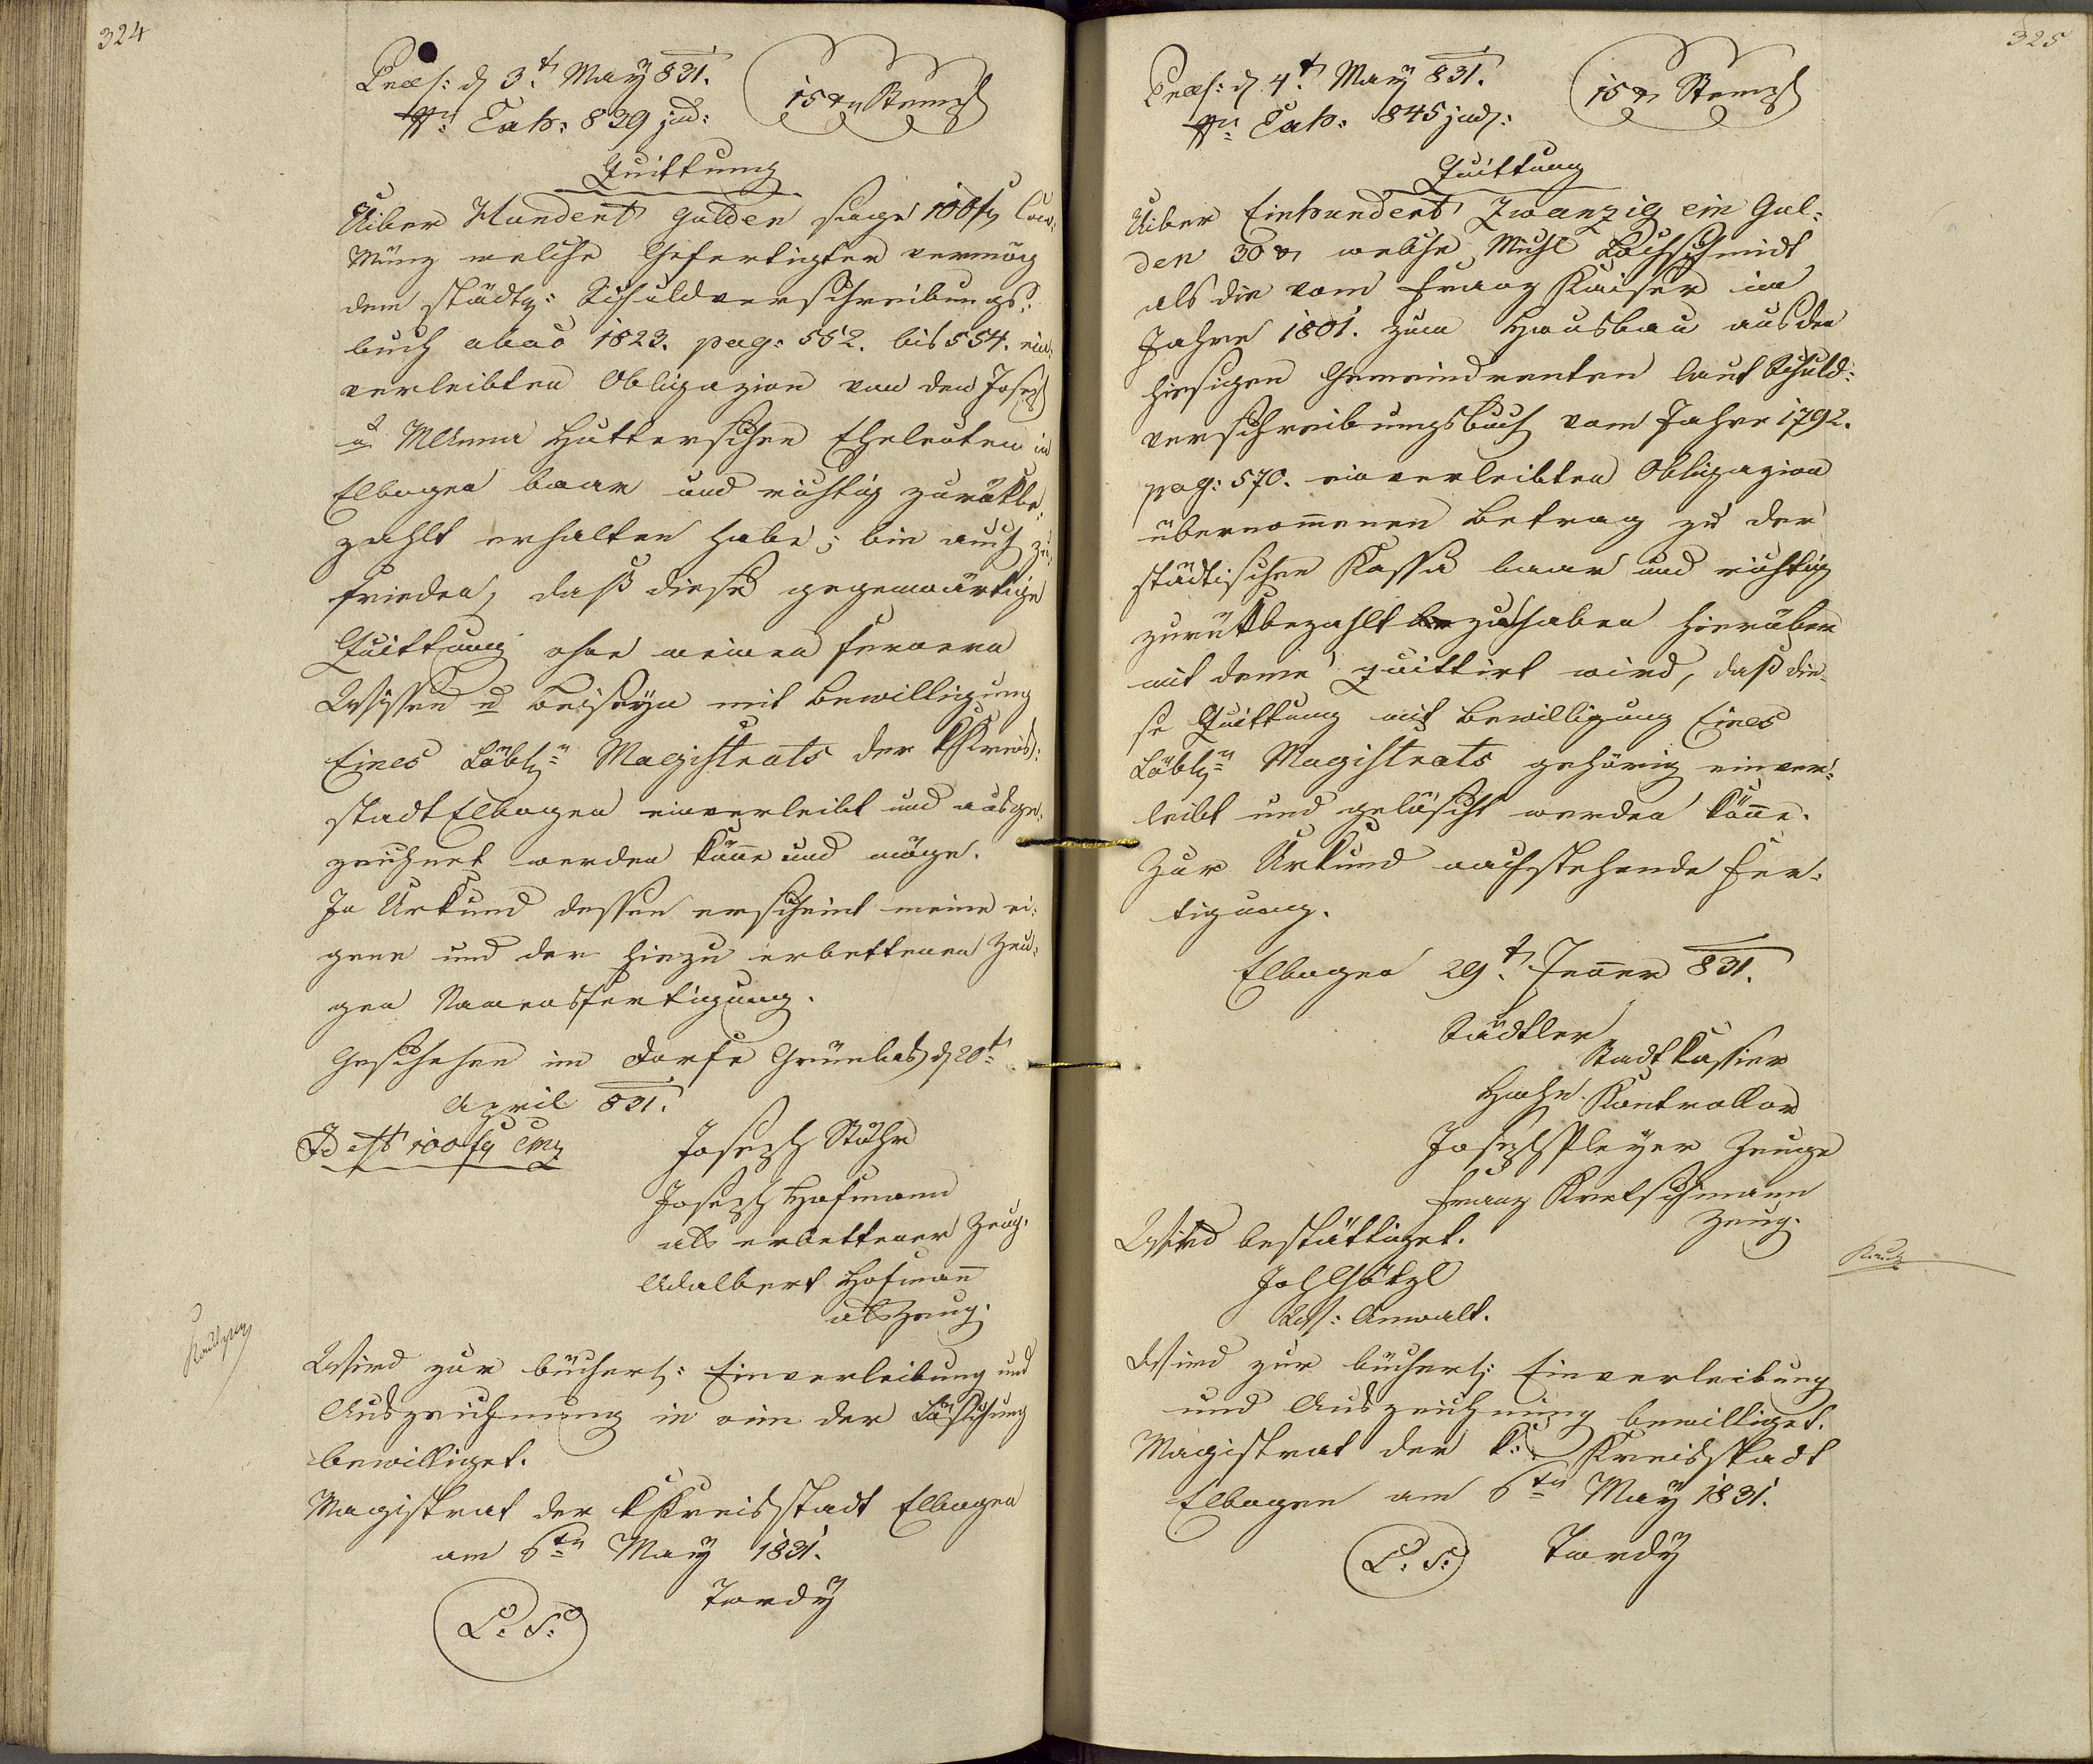 324
Praes: d 3t. May 831.
Exh: 829 jud:
15 xr Stempl
Quittung
Uiber Hundert Gulden sage 100 fr Conv:
Münz welche Gefertigter vermög
dem städt: Schuldverschreibungs:
buch abao 1823. pag: 552. bis 554. ein
verleibten Obligazion von den Joseph
u MAnna Hutterschen Eheleuten in
Elbogen baar und richtig zurükbe:
zahlt erhalten habe; bin auch zu:
frieden, daß diese gegenwärtige
Quittung ohne meinen fernern
Wissen u Beiseyn mit Bewilligung
Eines Löbln Magistrats der kKreis:
stadt Elbogen einverleibt und ausge:
zeichnet werden könne und möge.
In Urkund dessen erscheint meine ei:
gene und der hiezu erbettenen Zeu:
gen Namensfertigung.
Geschehen im Dorfe Grünlas d 20t
April 831.
Id est 100 fr CMz
Joseph Stöhr
Joseph Hofmann
als erbettener Zeug.
Adalbert Hofmann
als Zeug.
Wird zur bücherl: Einverleibung und
Auszeichnung in vim der Löschung
bewilliget.
Magistrat der kKreisstadt Elbogen
am 6tn May 1831.
L. S.
Tordy
325
Praes: d 4t. May 831.
Exh: 845 jud:
15 xr Stempl
Quittung
Uiber Einhundert Zwanzig ein Gul:
den 30 xr welche Michl Lochschmidt
als die vom Franz Kaiser im
Jahre 1801. zum Hausbau aus den
hiesigen Gemeindrenten laut Schuld:
verschreibungsbuch vom Jahre 1792.
pag: 570. einverleibten Obligazion
übernommenen Betrag zu der
städtischen Kassa baar und richtig
zurükbezahlt zu haben hierüber
mit deme quittirt wird, daß die:
se Quittung mit Bewilligung Eines
Löbln Magistrats gehörig einver:
leibt und gelöscht werden könne.
Zur Urkund nachstehende Fer:
tigung.
Elbogen 29t. Jenner 831.
Städtler
Stadtkassier
Hahn Kontrollor
Joseph Pleyer Zeuge
Franz Kretschmann
Zeug.
Wird bestättiget.
Joh Hötzl
Anwalt.
Wird zur bücherl: Einverleibung
und Auszeichnung bewilliget.
Magistrat der k: Kreisstadt
Elbogen am 6tn May 1831.
L. S.
Tordy